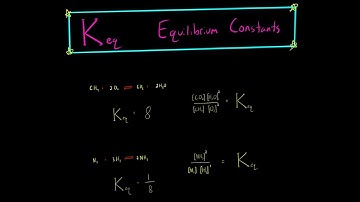 Keq Equilibrium Constants
CH₄ + 2O₂ ⇌ CO₂ + 2H₂O
[CO₂][H₂O]² / [CH₄][O₂]² = Keq
Keq = 8
N₂ + 3H₂ ⇌ 2NH₃
[NH₃]² / [N₂][H₂]³ = Keq
Keq = 1/8